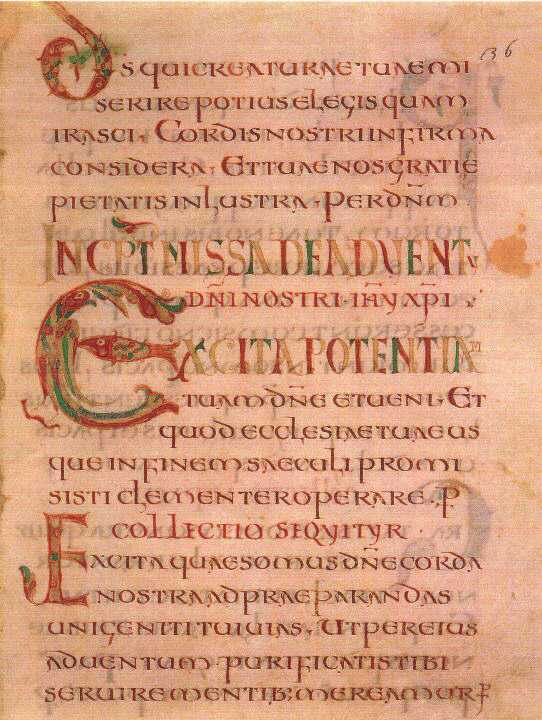 136
DS QUI CREATURAE TUAE MI
SERIRE POTIUS ELEGIS QUAM
IRASCI · CORDIS NOSTRI INFIRMA
CONSIDERA · ET TUAE NOS GRATIE
PIETATIS INLUSTRA · PER DN̅M
INCP̅T MISSA DE ADVENTU
DN̅I NOSTRI · IH̅Y XP̅I
EXCITA POTENTIA
TUAM DN̅E ET UENI · ET
QUOD ECCLESIAE TUAE US
QUE IN FINEM SAECULI PROMI
SISTI CLEMENTER OPERARE · P
COLLECTIO SEQVITVR ·
EXCITA QUAESOMUS DN̅E CORDA
NOSTRA AD PRAEPARANDAS
UNIGENITI TUI UIAS · UT PER EIUS
ADUENTUM · PURIFICATIS TIBI
SERUIRE MENTIB; MEREAMUR P